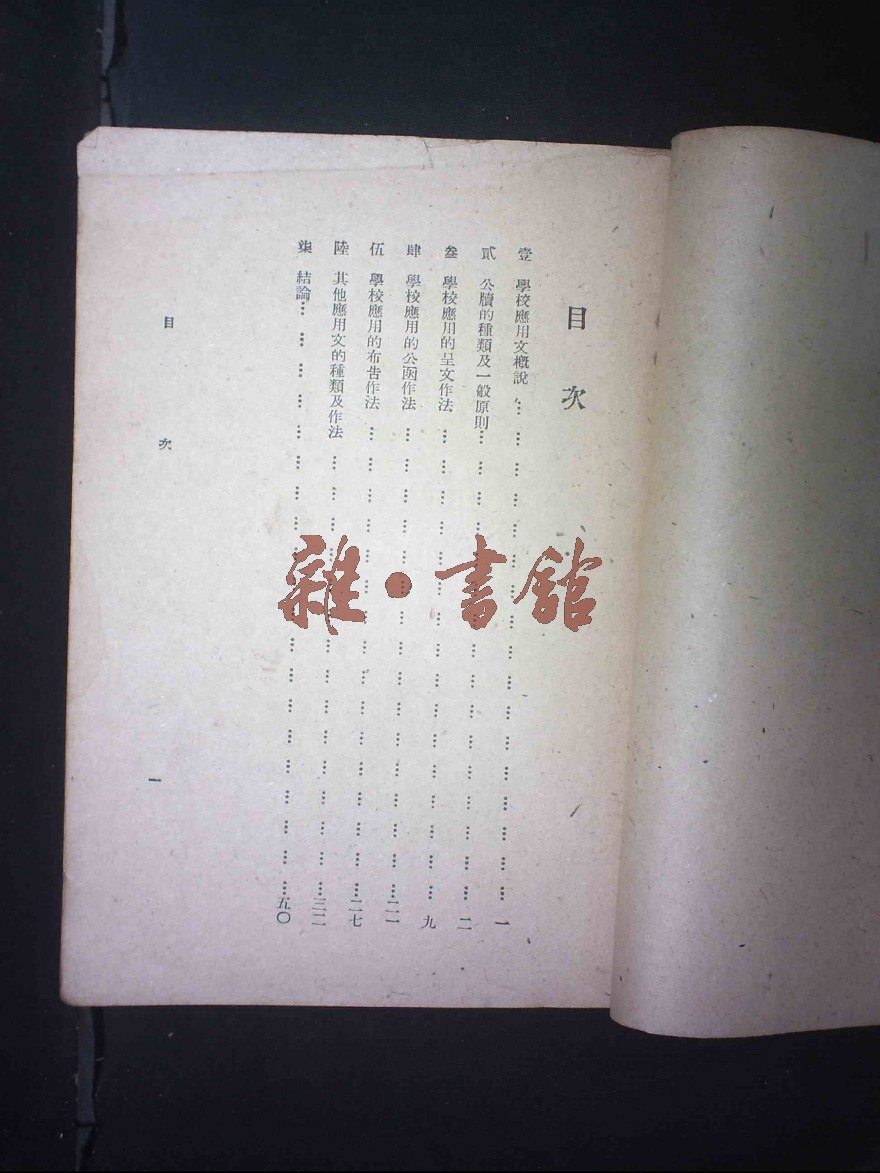 目次
壹 學校應用文概說 … … … … … … … … … … … … … … 一
貳 公牘的種類及一般原則 … … … … … … … … … … … … … 二
叁 學校應用的呈文作法 … … … … … … … … … … … … … 九
肆 學校應用的公函作法 … … … … … … … … … … … … … 二一
伍 學校應用的布告作法 … … … … … … … … … … … … … 二七
陸 其他應用文的種類及作法 … … … … … … … … … … … … 三二
柒 結論 … … … … … … … … … … … … … … … … … 五〇
目次 一
雜·書館